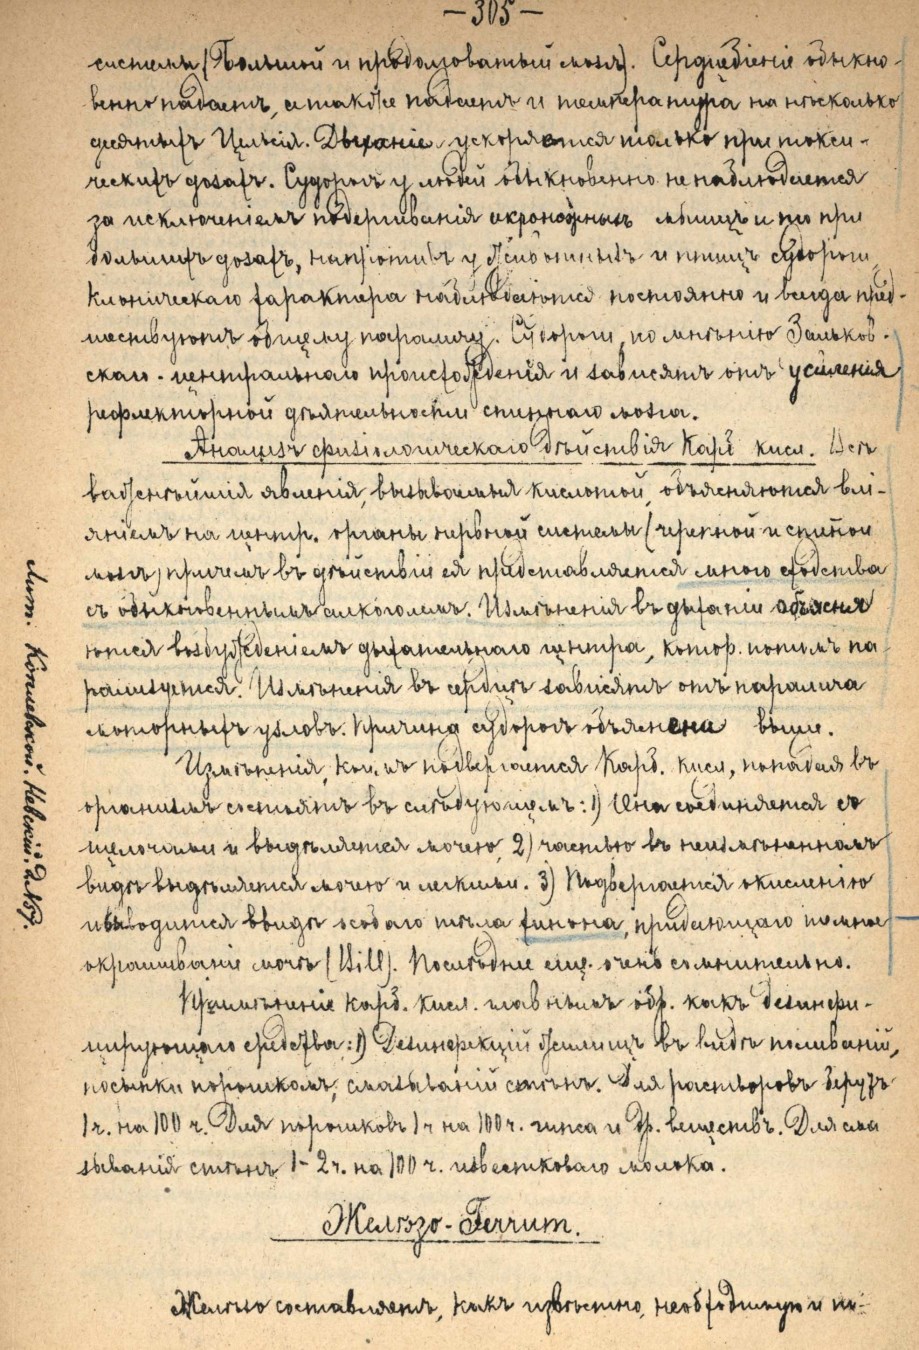 — 305 —
системы (Большой и продолговатый мозг). Сердцебіеніе обыкно-
венно падаетъ, а также падаетъ и температура на нѣсколько
десятыхъ Цельсія. Дыханіе ускоряется только при токси-
ческихъ дозахъ. Судорогъ у людей обыкновенно не наблюдается
за исключеніемъ подергиванія мышцъ и то при
большихъ дозахъ, напротивъ у животныхъ и птицъ судороги
клоническаго характера наблюдаются постоянно и всегда пред-
шествуютъ общему параличу. Судороги, по мнѣнію Зальков-
скаго - центральнаго происхожденія и зависятъ отъ усиленія
рефлекторной дѣятельности спиннаго мозга.
Анализъ физіологическаго дѣйствія Карб. кисл. Всѣ
важнѣйшія явленія, вызываемыя кислотой, объясняются влі-
яніемъ на центр. органы нервной системы (черепной и спиной
мозгъ) причемъ въ дѣйствіи ея представляется много сходства
съ обыкновеннымъ алкоголемъ. Измѣненія въ дыханіи объясня
ются возбужденіемъ дыхательнаго центра, котор. потомъ па-
рализуется. Измѣненія въ сердцѣ зависятъ отъ паралича
моторныхъ узловъ. Причина судорогъ объяснена выше.
Измѣненія, коимъ подвергается Карб. кисл., попадая въ
организмъ состоятъ въ слѣдующемъ: 1) Она соединяется со
щелочами и выдѣляется мочею, 2) частью въ неизмѣненномъ
видѣ выдѣляется мочею и легкими. 3) Подвергается окисленію
и выводится ввидѣ особаго тѣла хинона, придающаго темное
окрашиваніе мочѣ (Bill). Послѣднее еще очень сомнительно.
Примѣненіе карб. кисл. главнымъ обр. какъ дезинфи-
цирующаго средства: 1) Дезинфекцій жилищъ въ видѣ поливаній,
посыпки порошкомъ, смазываній стѣнъ. Для растворовъ берутъ
1 ч. на 100 ч. Для порошковъ 1 ч на 100 ч. гипса и др. веществъ. Для сма
зыванія стѣнъ 1 - 2 ч. на 100 ч. известковаго молока.
Желѣзо - Ferrum.
Желѣзо составляетъ, какъ извѣстно, необходимую и по-
Лит. Невскій.